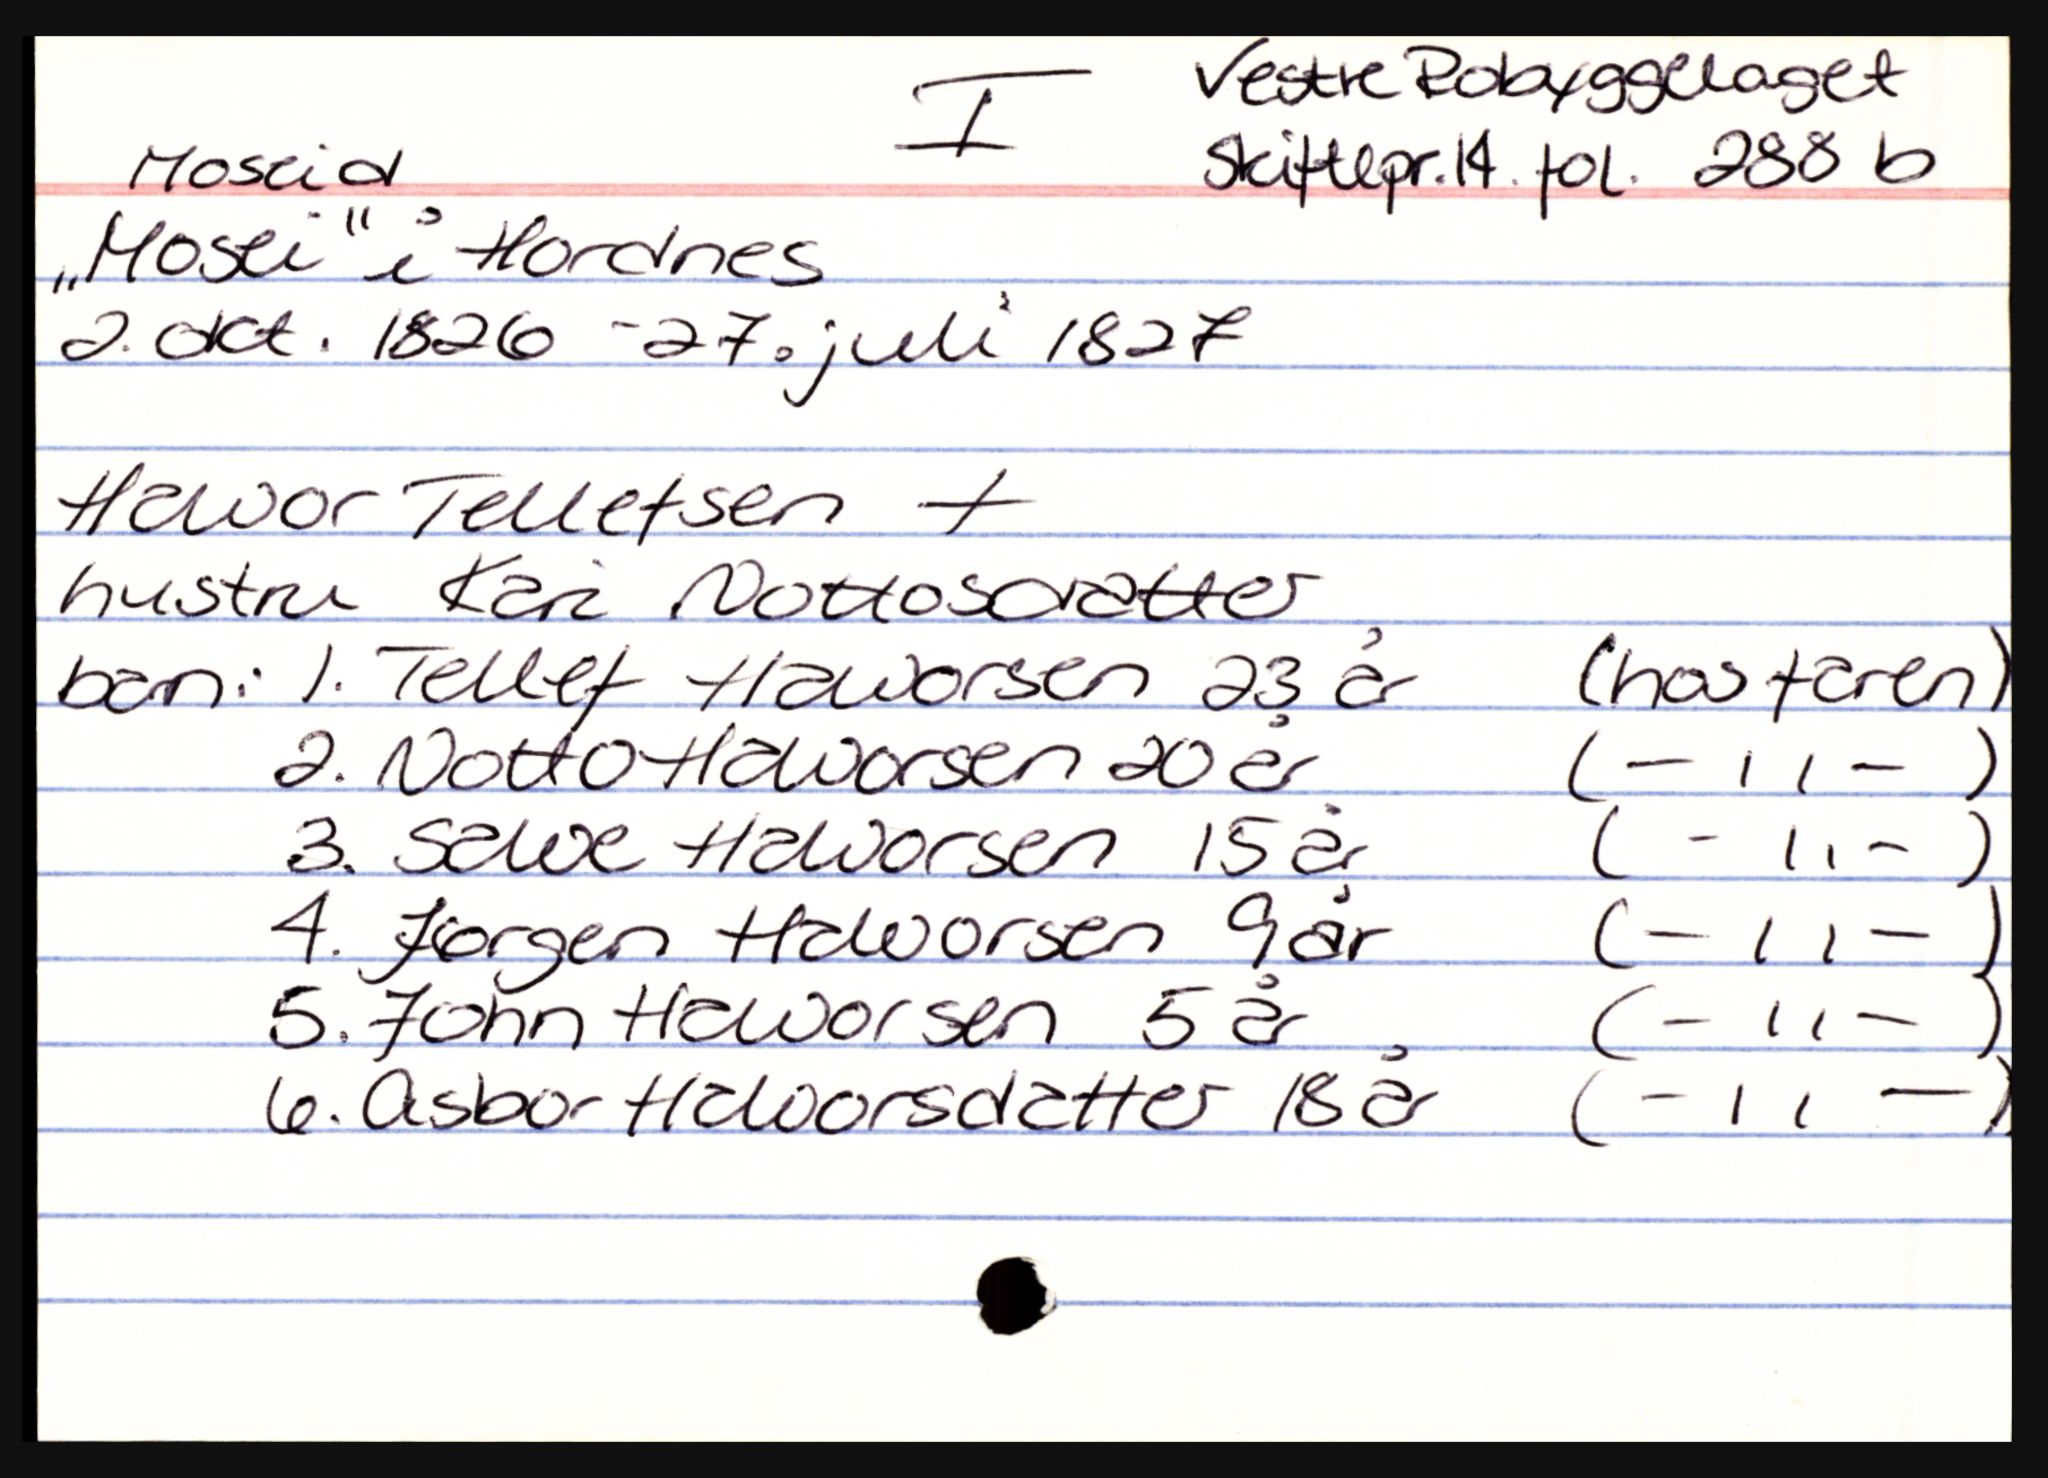 I
Vestre Robyggelaget
Moseid
Skiftepr. 14. fol. 288 b
„Mosei“ i Hordnes
2. okt. 1826 - 27. juli 1827
Halvor Tellefsen +
hustru Kari Nottosdatter
barn: 1. Tellef Halvorsen 23 år (hos faren)
2. Notto Halvorsen 20 år (- 11 -)
3. Salve Halvorsen 15 år (- 11 -)
4. Jørgen Halvorsen 9 år (- 11 -)
5. John Halvorsen 5 år (- 11 -)
6. Asbor Halvorsdatter 18 år (- 11 -)